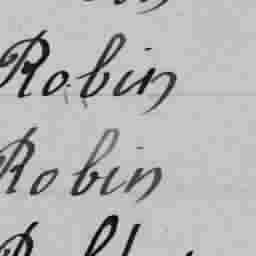 Robin
Robin